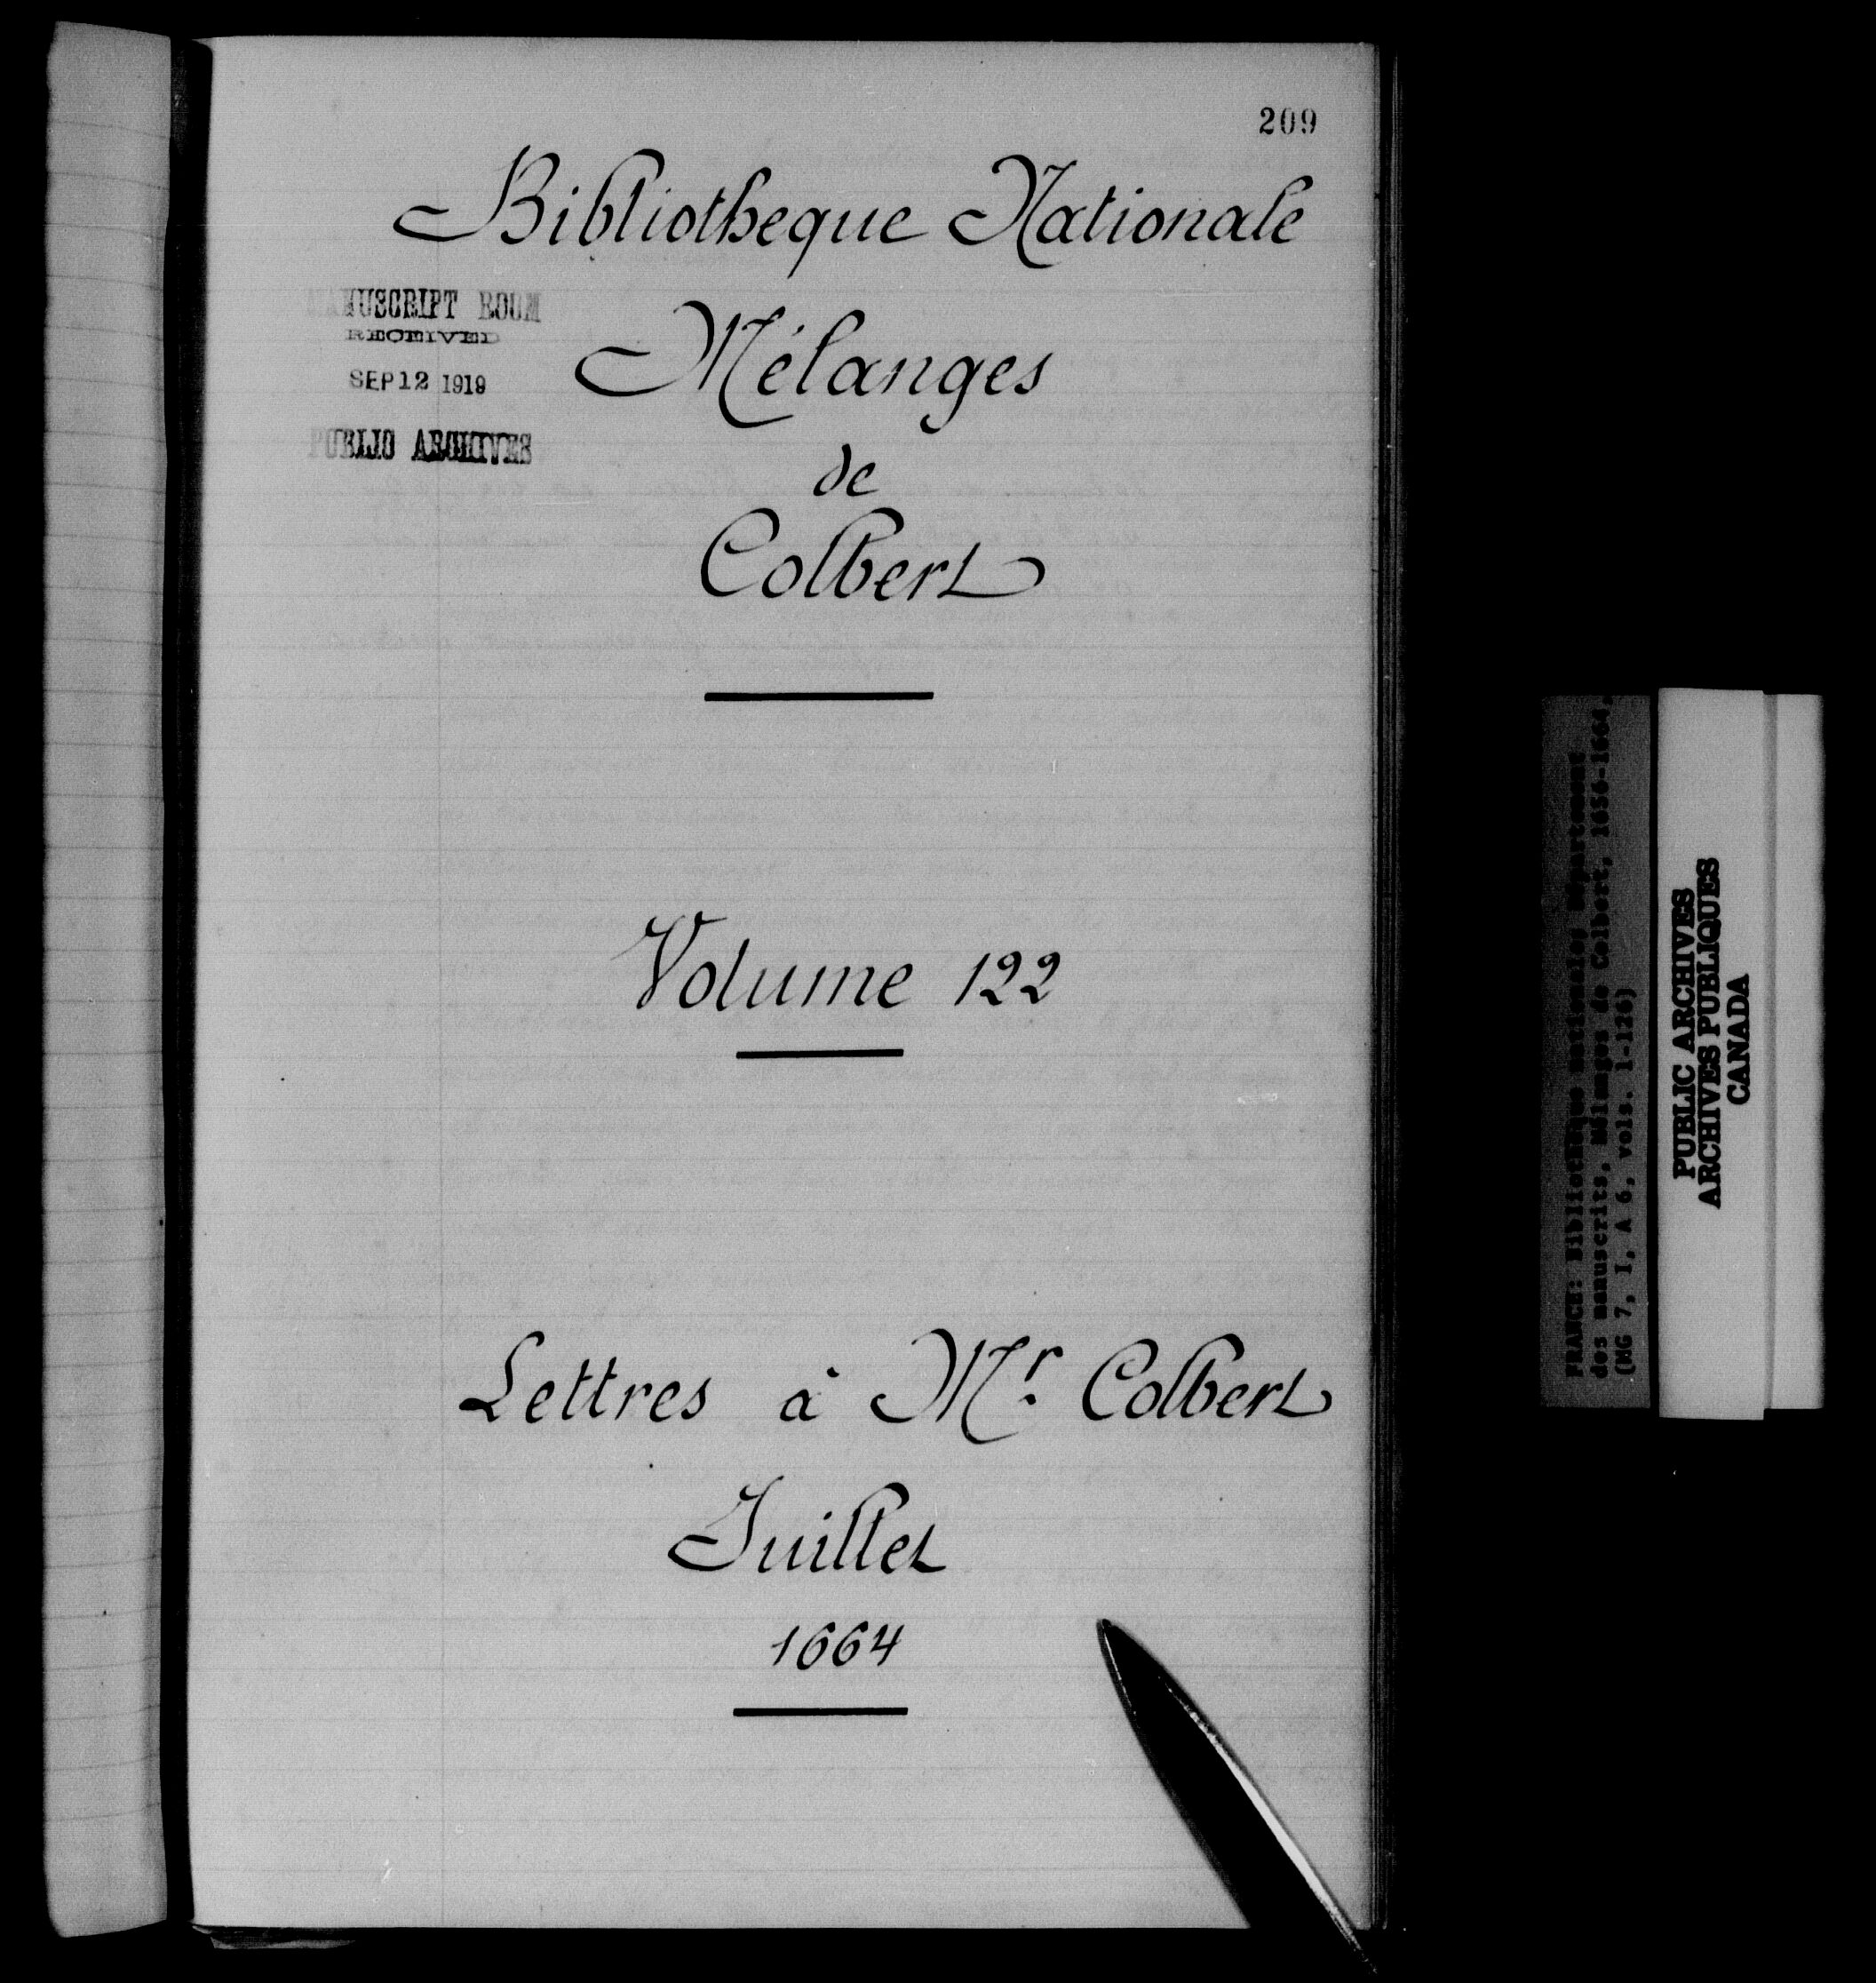 209
Bibliotheque Nationale
MANUSCRIPT ROOM
RECEIVED
SEP 12 1919
PUBLIC ARCHIVES
Mélanges
de
Colbert
Volume 122
Lettres à Mr. Colbert
Juillet
1664
FRANCE: Bibliothèque nationale, Département
des manuscrits, Mélanges de Colbert, 1656-1664,
(MG 7, I, A 6, vols. 1-126)
PUBLIC ARCHIVES
ARCHIVES PUBLIQUES
CANADA